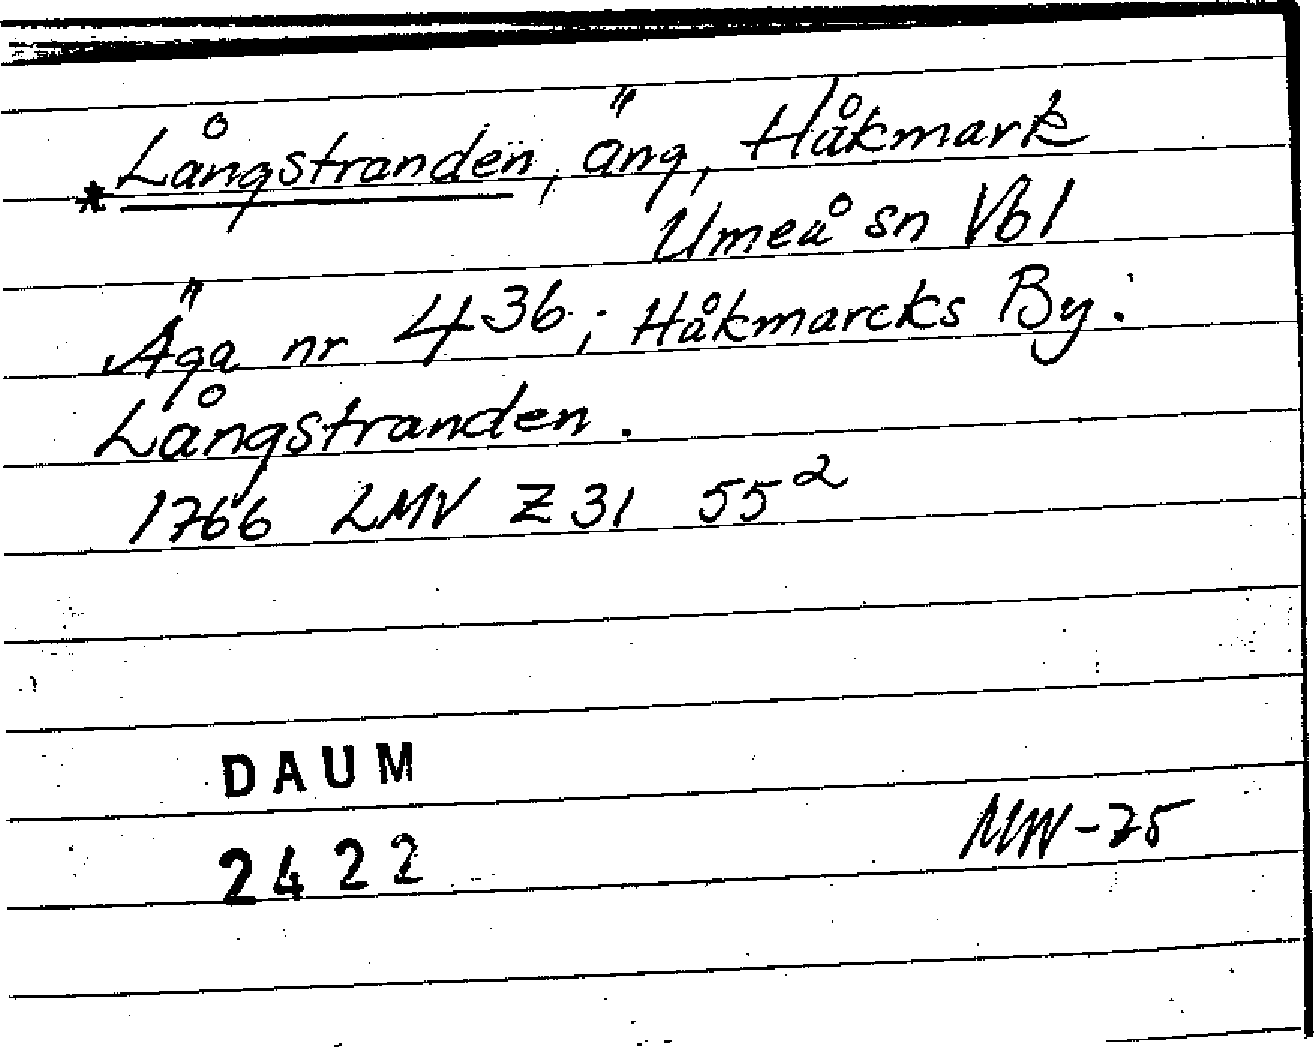 * Långstranden, äng, Håkmark
Umeå sn Vbl
Äga nr 436; Håkmarcks By:
Långstranden.
1766 LMV Z 31 55²
DAUM
2422
MW-75